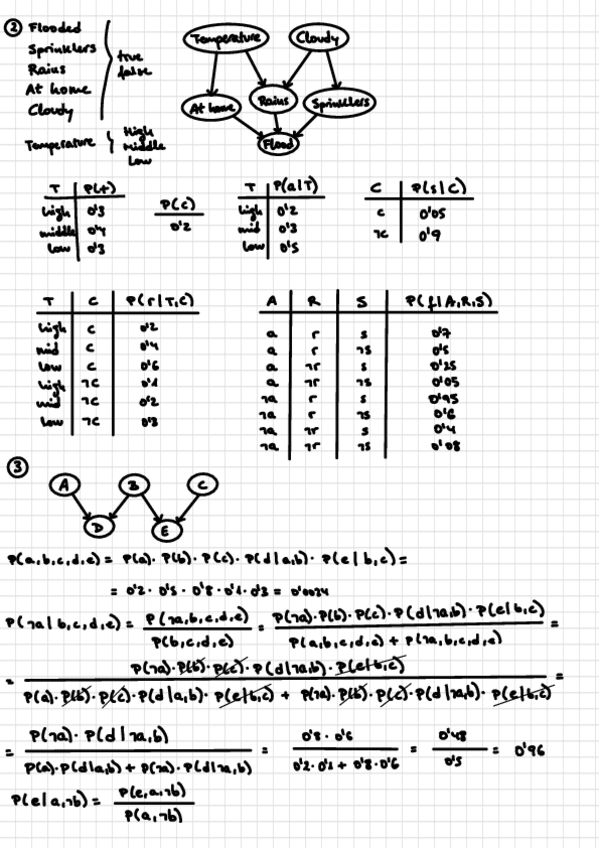 ② Flooded
Sprinklers
Rains
At home
Cloudy
true
false
Temperature
High
Middle
Low
Temperature
Cloudy
At home
Rains
Sprinklers
Flood
T P(t)
high 0'3
middle 0'4
low 0'3
P(c)
0'2
T P(a|T)
high 0'2
mid 0'3
low 0'5
C P(s|C)
c 0'05
¬c 0'9
T C P(r|T,C)
high c 0'2
mid c 0'4
low c 0'6
high ¬c 0'1
mid ¬c 0'2
low ¬c 0'3
A R S P(f|A,R,S)
a r s 0'7
a r ¬s 0'5
a ¬r s 0'25
a ¬r ¬s 0'05
¬a r s 0'95
¬a r ¬s 0'6
¬a ¬r s 0'4
¬a ¬r ¬s 0'08
③
A B C
D E
P(a,b,c,d,e) = P(a)·P(b)·P(c)·P(d|a,b)·P(e|b,c) =
= 0'2 · 0'5 · 0'8 · 0'1 · 0'3 = 0'0024
P(¬a|b,c,d,e) = P(¬a,b,c,d,e) / P(b,c,d,e) = P(¬a)·P(b)·P(c)·P(d|¬a,b)·P(e|b,c) / P(a,b,c,d,e) + P(¬a,b,c,d,e) =
= P(¬a)·P(b)·P(c)·P(d|¬a,b)·P(e|b,c) / P(a)·P(b)·P(c)·P(d|a,b)·P(e|b,c) + P(¬a)·P(b)·P(c)·P(d|¬a,b)·P(e|b,c) =
= P(¬a)·P(d|¬a,b) / P(a)·P(d|a,b) + P(¬a)·P(d|¬a,b) = 0'8 · 0'6 / 0'2 · 0'1 + 0'8 · 0'6 = 0'48 / 0'5 = 0'96
P(e|a,¬b) = P(e,a,¬b) / P(a,¬b)